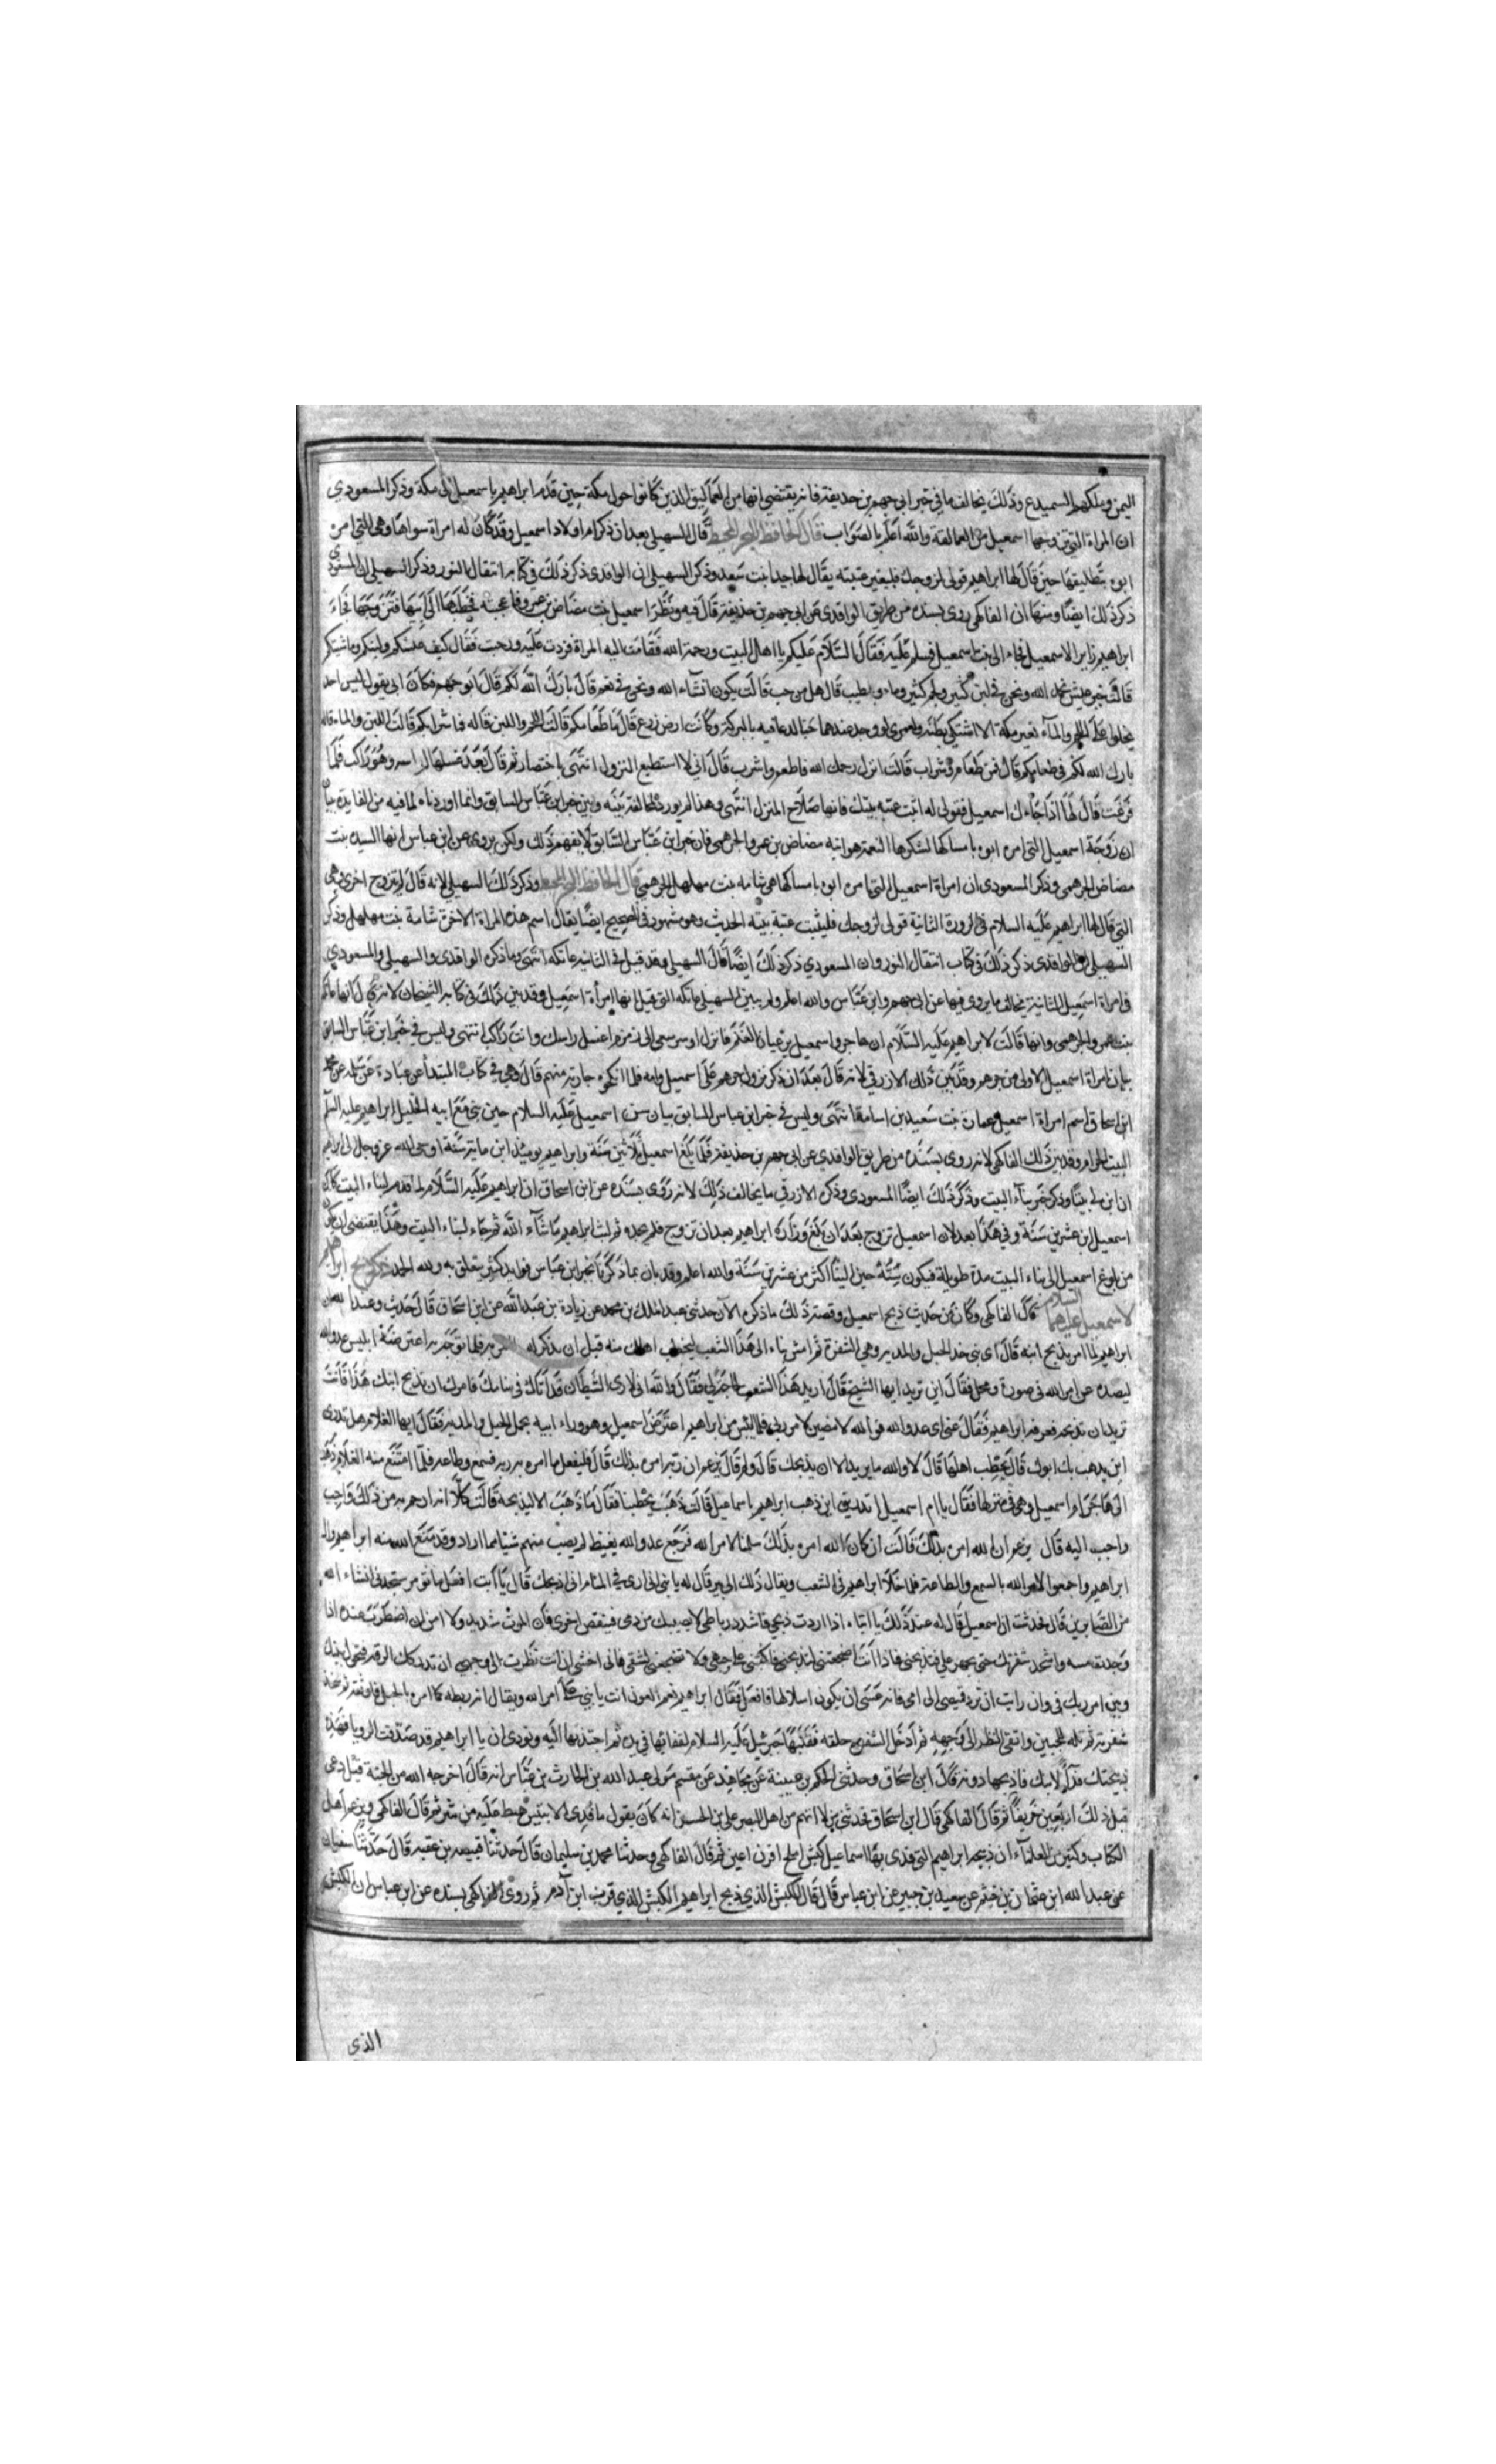 اليمن وملكهم السميدع وذلك يخالف ما في خبر ابي جهم بن حذيفة فانه يقتضي انها من العماليق الذين كانوا حول مكة حين قدم ابراهيم باسمعيل الى مكة وذكر المسعودي
ان المراة التي تزوجها اسمعيل من العمالقة والله اعلم بالصواب قال الحافظ قال السهيلي بعد ان ذكر امر اولاد اسمعيل وقد كان له امراة سواها وهي التي امره
ابوه بتطليقها حين قال لها ابراهيم قولي لزوجك فليغير عتبته يقال لها جدا بنت سعد وذكر السهيلي ان الواقدي ذكر ذلك في كتابه انتقال النور وذكر السهيلي ان المسعودي
ذكر ذلك ايضا ومنها ان الفاكهي روى بسنده من طريق الواقدي عن ابي جهم بن حذيفة قال فيه ونظر اسمعيل بنت مضاض بن عمرو فاعجبته فخطبها الى ابيها فتزوجها فجاء
ابراهيم زايرا لاسمعيل فجاء الى بيت اسمعيل فسلم عليه فقال السلام عليكم يا اهل البيت ورحمة الله فقامت اليه المراة فردت عليه ورحبت فقال كيف عيشكم ولبنكم وماشيتكم
قالت خير عيش نحمد الله ونحن في لبن كثير ولحم كثير وماء وطيب قال هل من حب قالت يكون ان شاء الله ونحن في نعم قال بارك الله لكم قال ابو جهم فكان ابي يقول ليس احد
يخلوا على اللحم والماء بغير مكة الا اشتكى بطنه ولعمري لو وجد عندها حبا لدعا فيه بالبركة وكانت ارض زرع قال ما طعامكم قالت اللحم واللبن قال فما شرابكم قالت اللبن والماء قال
بارك الله لكم في طعامكم قال فمن طعام وشراب قالت انزل رحمك الله فاطعم واشرب قال اني لا استطيع النزول انتهى باختصار ثم قال بعد غسلها لراسه وهو راكب فلما
فرغت قال لها اذا جاءك اسمعيل فقولي له اثبت عتبة بيتك فانها صلاح المنزل انتهى وهذا لم نورده لمخالفة بينه وبين خبر ابن عباس السابق وانما اوردناه لما فيه من الفايدة ببيان
ان زوجة اسمعيل التي امره ابوه بامساكها لشكرها النعمة هي ابنة مضاض بن عمرو الجرهمي فان خبر ابن عباس السابق لا يفهم ذلك ولكن يروى عن ابن عباس انها السيدة بنت
مضاض الجرهمي وذكر المسعودي ان امراة اسمعيل التي امره ابوه بامساكها هي شامة بنت مهلهل الجرهمي قال الحافظ وذكر ذلك السهيلي لانه قال ثم تزوج اخرى وهي
التي قال لها ابراهيم عليه السلام في الزورة الثانية قولي لزوجك فليثبت عتبة بيته الحديث وهو مشهور في الصحيح ايضا يقال اسم هذه المراة الاخرة شامة بنت مهلهل وذكر
السهيلي ان الواقدي ذكر ذلك في كتاب انتقال النور وان المسعودي ذكر ذلك ايضا قال السهيلي وقد قيل في الثانية عاتكة انتهى وما ذكره الواقدي والسهيلي والمسعودي
في امراة اسمعيل الثانية يخالف ما يروى فيها عن ابي جهم وابن عباس والله اعلم ولم يبين السهيلي عاتكة التي قيل انها امراة اسمعيل وقد بين ذلك في كتابه
بنت عمرو الجرهمي وانها قالت لابراهيم عليه السلام انزل اغسل راسك وانت راكب انتهى وليس في خبر ابن عباس السابق
بيان امراة اسمعيل الاولى من جرهم وقد بين ذلك الازرقي لانه قال بعد ان ذكر نزول جرهم على اسمعيل وامه فلما انكحوه جارية منهم قال وهي في كتاب المبتدا عن عبادة عن سلمة عن محمد
ابن اسحاق اسم امراة اسمعيل عمارة بنت سعيد بن اسامة انتهى وليس في خبر ابن عباس السابق بيان سن اسمعيل عليه السلام حين بنى مع ابيه الخليل ابراهيم عليه السلام
البيت الحرام وقد بين ذلك الفاكهي لانه روى بسنده من طريق الواقدي عن ابي جهم بن حذيفة فلما بلغ اسمعيل ثلاثين سنة وابراهيم يومئذ ابن ماية سنة اوحى الله عز وجل الى ابراهيم
ان ابن لي بيتا وذكر خبر بناء البيت وذكر ذلك ايضا المسعودي وذكر الازرقي ما يخالف ذلك لانه روى بسنده عن ابن اسحاق ان ابراهيم عليه السلام لما قدم لبناء البيت كان
اسمعيل ابن عشرين سنة وفي هذا بعد لان اسمعيل تزوج بعد ان بلغ وزاره ابراهيم بعد ان تزوج فلم يجده ثم لبث ابراهيم ما شاء الله ثم جاء لبناء البيت وهذا يقتضي ان يكون
من بلوغ اسمعيل الى بناء البيت مدة طويلة فيكون سنه حين البناء اكثر من عشرين سنة والله اعلم وقد بان بما ذكرناه بخبر ابن عباس فوايد كثيرة تتعلق به ولله الحمد ذكر ذبح ابراهيم
لاسمعيل عليهما السلام قال الفاكهي وكان من حديث ذبح اسمعيل وقصة ذلك ما ذكره الآن حدثني عبد الملك بن محمد عن زيادة بن عبد الله عن ابن اسحاق قال حدثت وعند الله ان
ابراهيم لما امر بذبح ابنه قال اي بني خذ الحبل والمدية وهي الشفرة ثم امش بنا الى هذا الشعب لنحطب اهلك منه قبل ان يذكر له فلما توجه به اعترضه ابليس عدو الله
ليصده عن امر الله في صورة رجل فقال اين تريد ايها الشيخ قال اريد هذا الشعب لحاجة لي فقال والله اني لارى الشيطان قد اتاك في منامك فامرك ان تذبح ابنك هذا فانت
تريد ان تذبحه فعرفه ابراهيم فقال عني اي عدو الله فوالله لامضين لامر ربي فلما يئس من ابراهيم اعترض اسمعيل وهو وراء ابيه يحمل الحبل والمدية فقال ايها الغلام هل تدري
اين يذهب بك ابوك قال نحطب اهلنا قال لا والله ما يريد الا ان يذبحك قال ولم قال يزعم ان ربه امره بذلك قال فليفعل ما امره به ربه فسمع وطاعة فلما امتنع منه الغلام ذهب
الى هاجر ام اسمعيل وهي في منزلها فقال يا ام اسمعيل اتدرين اين ذهب ابراهيم باسماعيل قالت ذهب يحطبنا فقال ما ذهب الا ليذبحه قالت كلا انه ارحم به من ذلك واحب
واحب اليه قال يزعم ان الله امره بذلك قالت ان كان الله امره بذلك سلمنا لامر الله فرجع عدو الله بغيظ لم يصب منهم شيئا مما اراد وقد منع الله منه ابراهيم وال
ابراهيم واجمعوا لامر الله بالسمع والطاعة فلما خلا ابراهيم في الشعب ويقال ذلك الى ثبير قال له يا بني اني ارى في المنام اني اذبحك قال يا ابت افعل ما تؤمر ستجدني انشاء الله
من الصابرين قال فحدثت ان اسمعيل قال له عند ذلك يا ابتاه اذا اردت ذبحي فاشدد رباطي لا يصيبك من دمي فينقص اجري فان الموت شديد ولا امن ان اضطرب عنده اذا
وجدت مسه واشحذ شفرتك حتى تجهز علي فتذبحني فاذا انت اضجعتني لتذبحني فاكببني على وجهي ولا تضجعني لشقي فاني اخشى ان انت نظرت الى وجهي ان تدركك الرقة فتحول بينك
وبين امر ربك في وان رايت ان ترد قميصي الى امي فانه عسى ان يكون اسلا لها فافعل فقال ابراهيم نعم العون انت يا بني على امر الله ويقال انه ربطه كما امره بالحبل فاوثقه ثم شحذ
شفرته ثم تله للجبين واتقى النظر الى وجهه ثم ادخل الشفرة حلقه فقلبها جبرئيل عليه السلام لقفائها في يده ثم اجتذبها اليه ونودي ان يا ابراهيم قد صدقت الرويا فهذه
ذبيحتك فداء لابنك فاذبحها دونه قال ابن اسحاق وحدثني الحكم بن عيينة عن مجاهد عن مقسم مولى عبد الله بن الحارث بن عباس انه قال اخرجه الله من الجنة قيل رعى
قبل ذلك اربعين خريفا ثم قال الفاكهي قال ابن اسحاق فحدثني من لا اتهم من اهل البصر عن الحسن انه كان يقول ما فدي الا بتيس هبط عليه من ثبير ثم قال الفاكهي ويزعم اهل
الكتاب وكثير من العلماء ان ذبيحة ابراهيم التي فدى بها اسماعيل كبش املح اقرن اعين ثم قال الفاكهي وحدثنا محمد بن سليمان قال حدثنا قبيصة بن عقبة قال حدثنا سفيان
عن عبد الله ابن عثمان بن خثم عن سعيد بن جبير عن ابن عباس قال قال الكبش الذي ذبح ابراهيم الكبش الذي قربه ابن آدم ثم روى الفاكهي بسنده عن ابن عباس ان الكبش
الذي